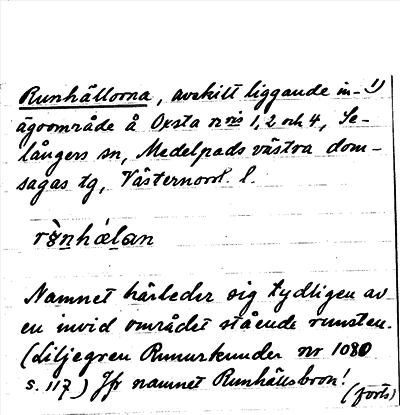 Runhällorna, avskilt liggande in- 1)
ägoområde å Oxsta nris 1, 2 och 4, Se-
långers sn, Medelpads västra dom-
sagas tg, Västernorrl. l.
rùnhǽlan
Namnet härleder sig tydligen av
en invid området stående runsten.
(Liljegren Runurkunder nr 1080
s. 117) Jfr namnet Runhällsbron!
(forts)